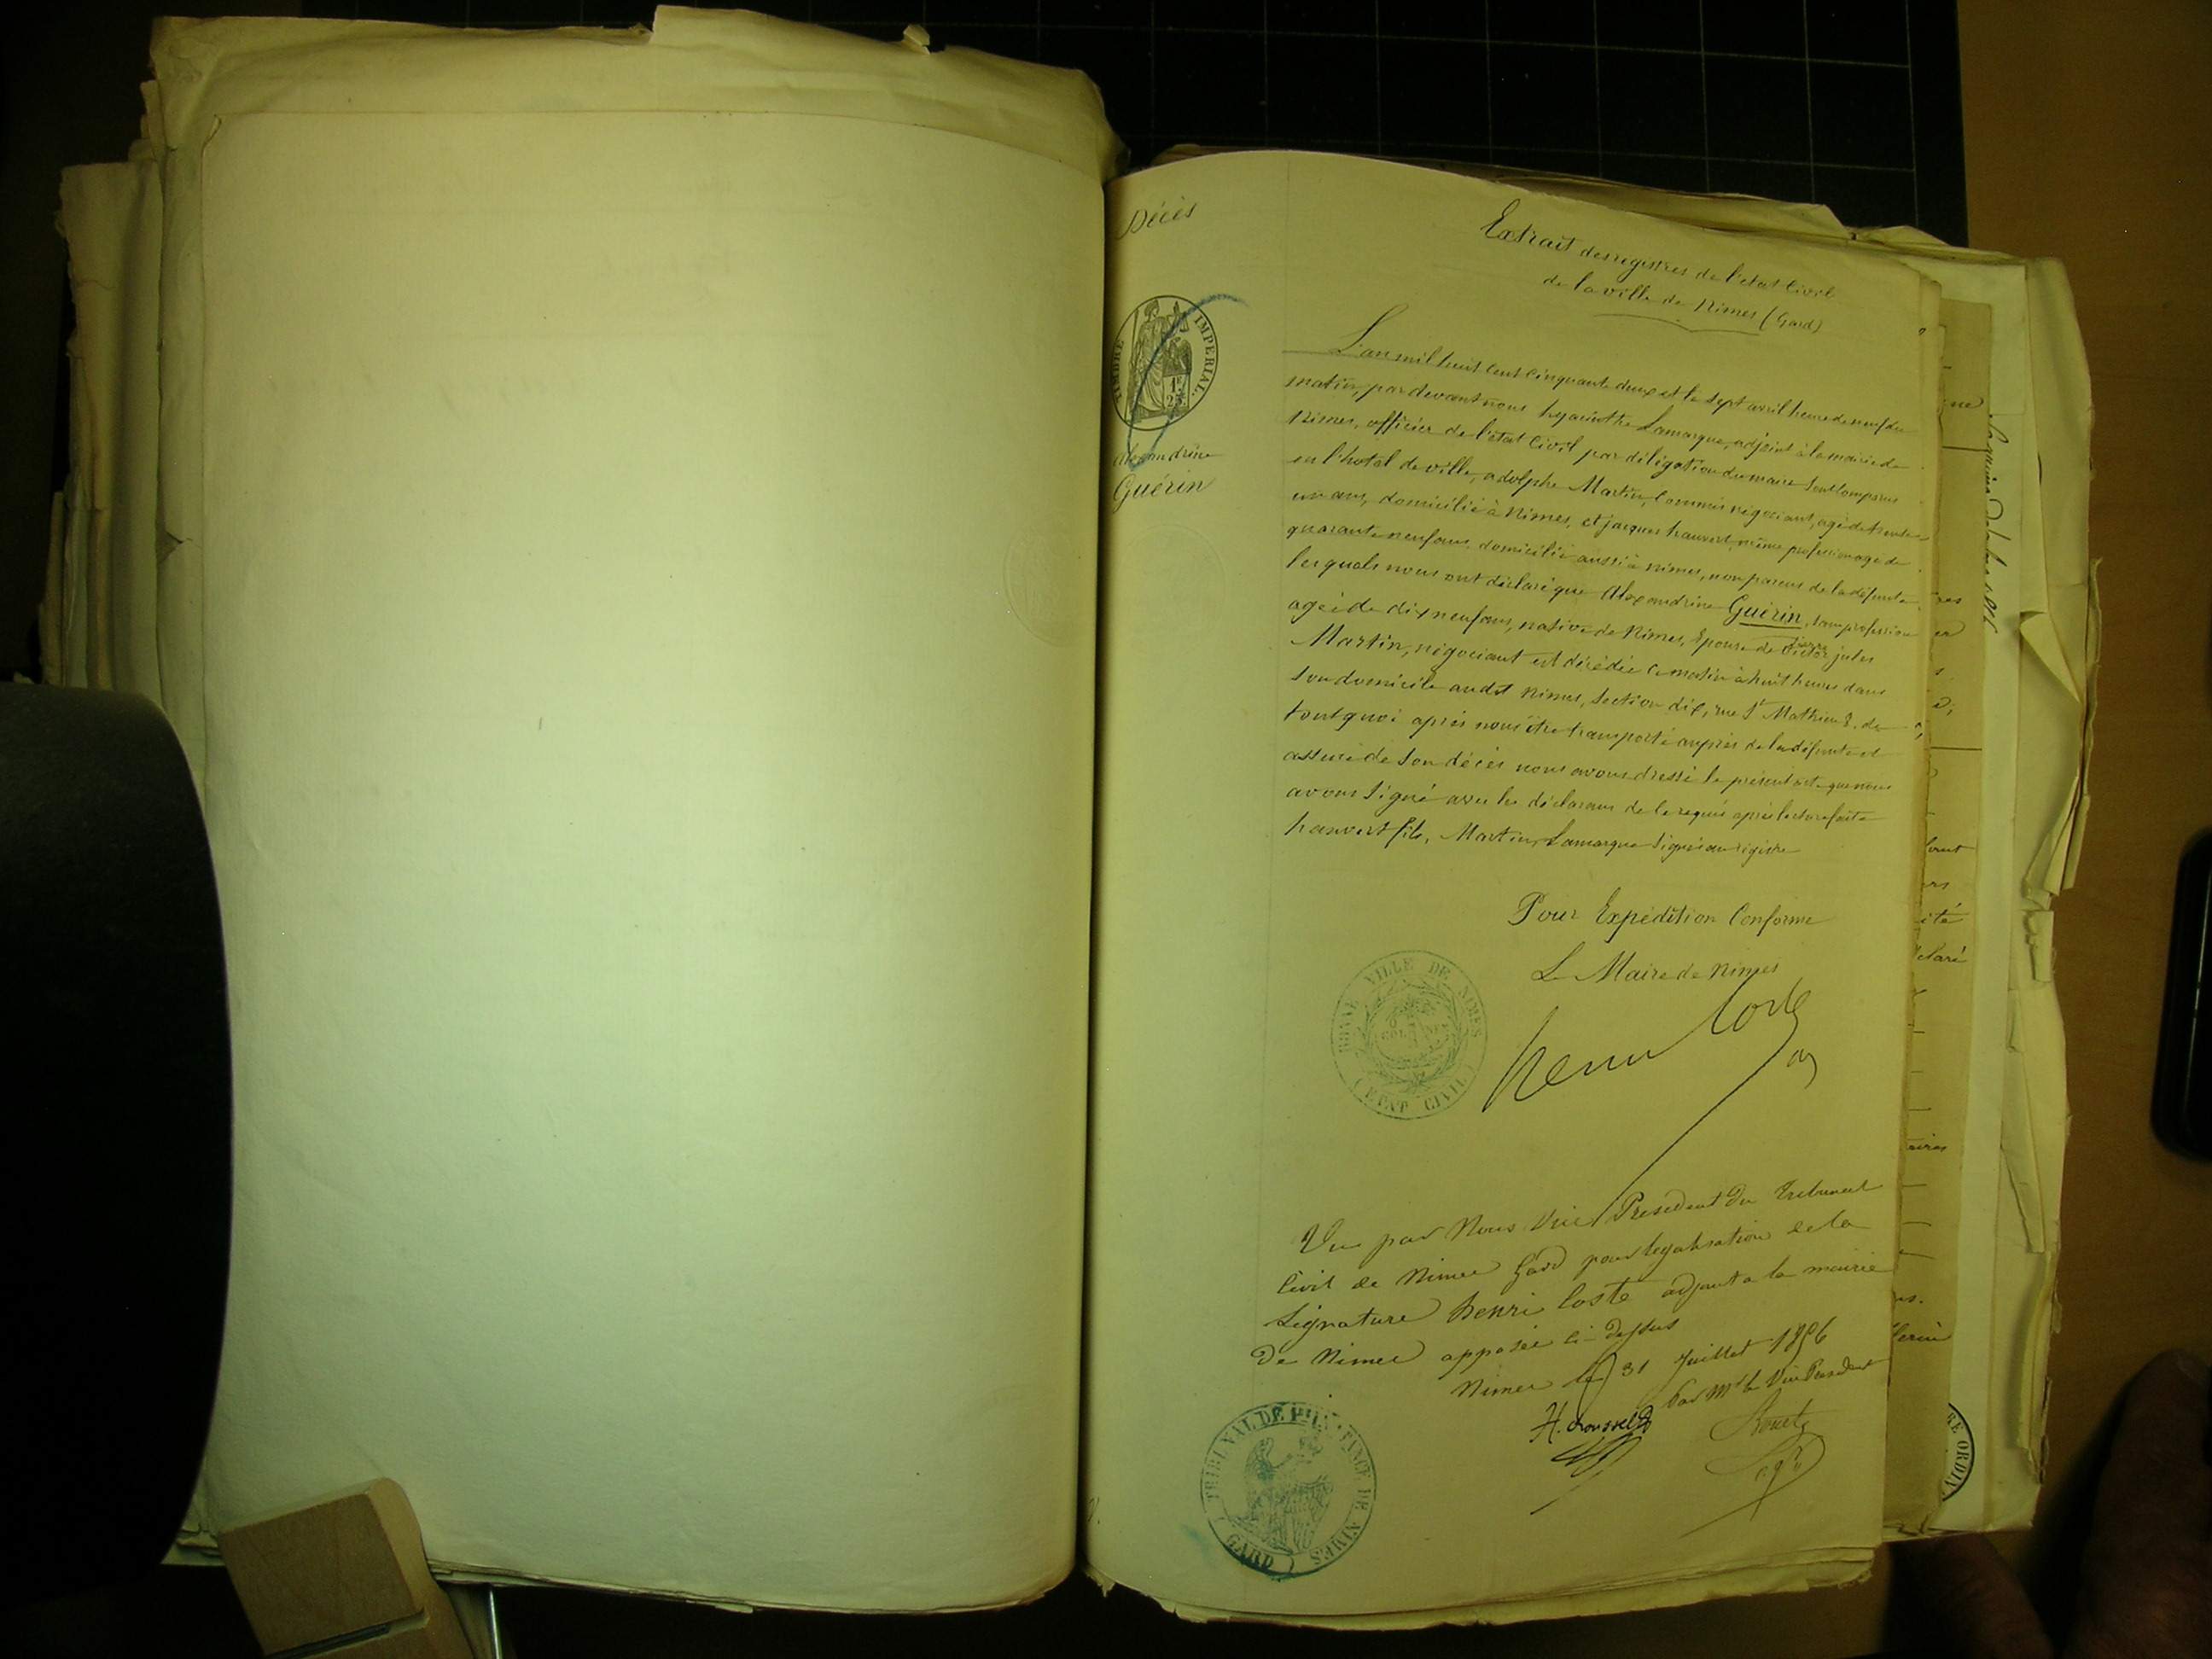 Décès
TIMBRE IMPERIAL.
Alexandrine
Guérin
Extrait des registres de l'état Civil
de la ville de Nimes (Gard)
L'an mil huit cent cinquante deux et le sept avril heure de neuf du
matin, par devant nous hyacinthe Lamarque, adjoint à la mairie de
Nimes, officier de l'état Civil par déligation du maire sont comparus
en l'hotel de ville, adolphe Martin, commis négociant, agé de trente
un ans, domicilié à Nimes, et jacques hauvert même profession agé de
quarante neuf ans, domicilié aussi à nimes, non parens de la défunte
lesquels nous ont déclaré que Alexandrine Guérin, sans profession
agée de dix neuf ans, native de Nimes, Epouse de Victor jules
Martin, négociant est décédée ce matin à huit heures dans
son domicile audit Nimes, section dix, rue St Mathieu 8. de
tout quoi après nous être transporté auprès de la défunte et
assuré de son décès nous avons dressé le présent act que nous
avons signé avec les déclarans de ce requis après lecture faite
hauvert fils, Martin, Lamarque signés au régistre
Pour Expédition Conforme
Le Maire de Nimes
BONNE VILLE DE NIMES
COL NEM
(ETAT CIVIL)
henri Coste
adj
Vu par Nous Vice Président du Tribunal
Civil de Nimes Gard pour légalisation de la
signature henri Coste adjoint à la mairie
de Nimes apposée ci-dessus
Nimes le 31 Juillet 1856
Par Mr le Vice Président
TRIBUNAL DE 1ère INSTANCE DE NIMES
(GARD)